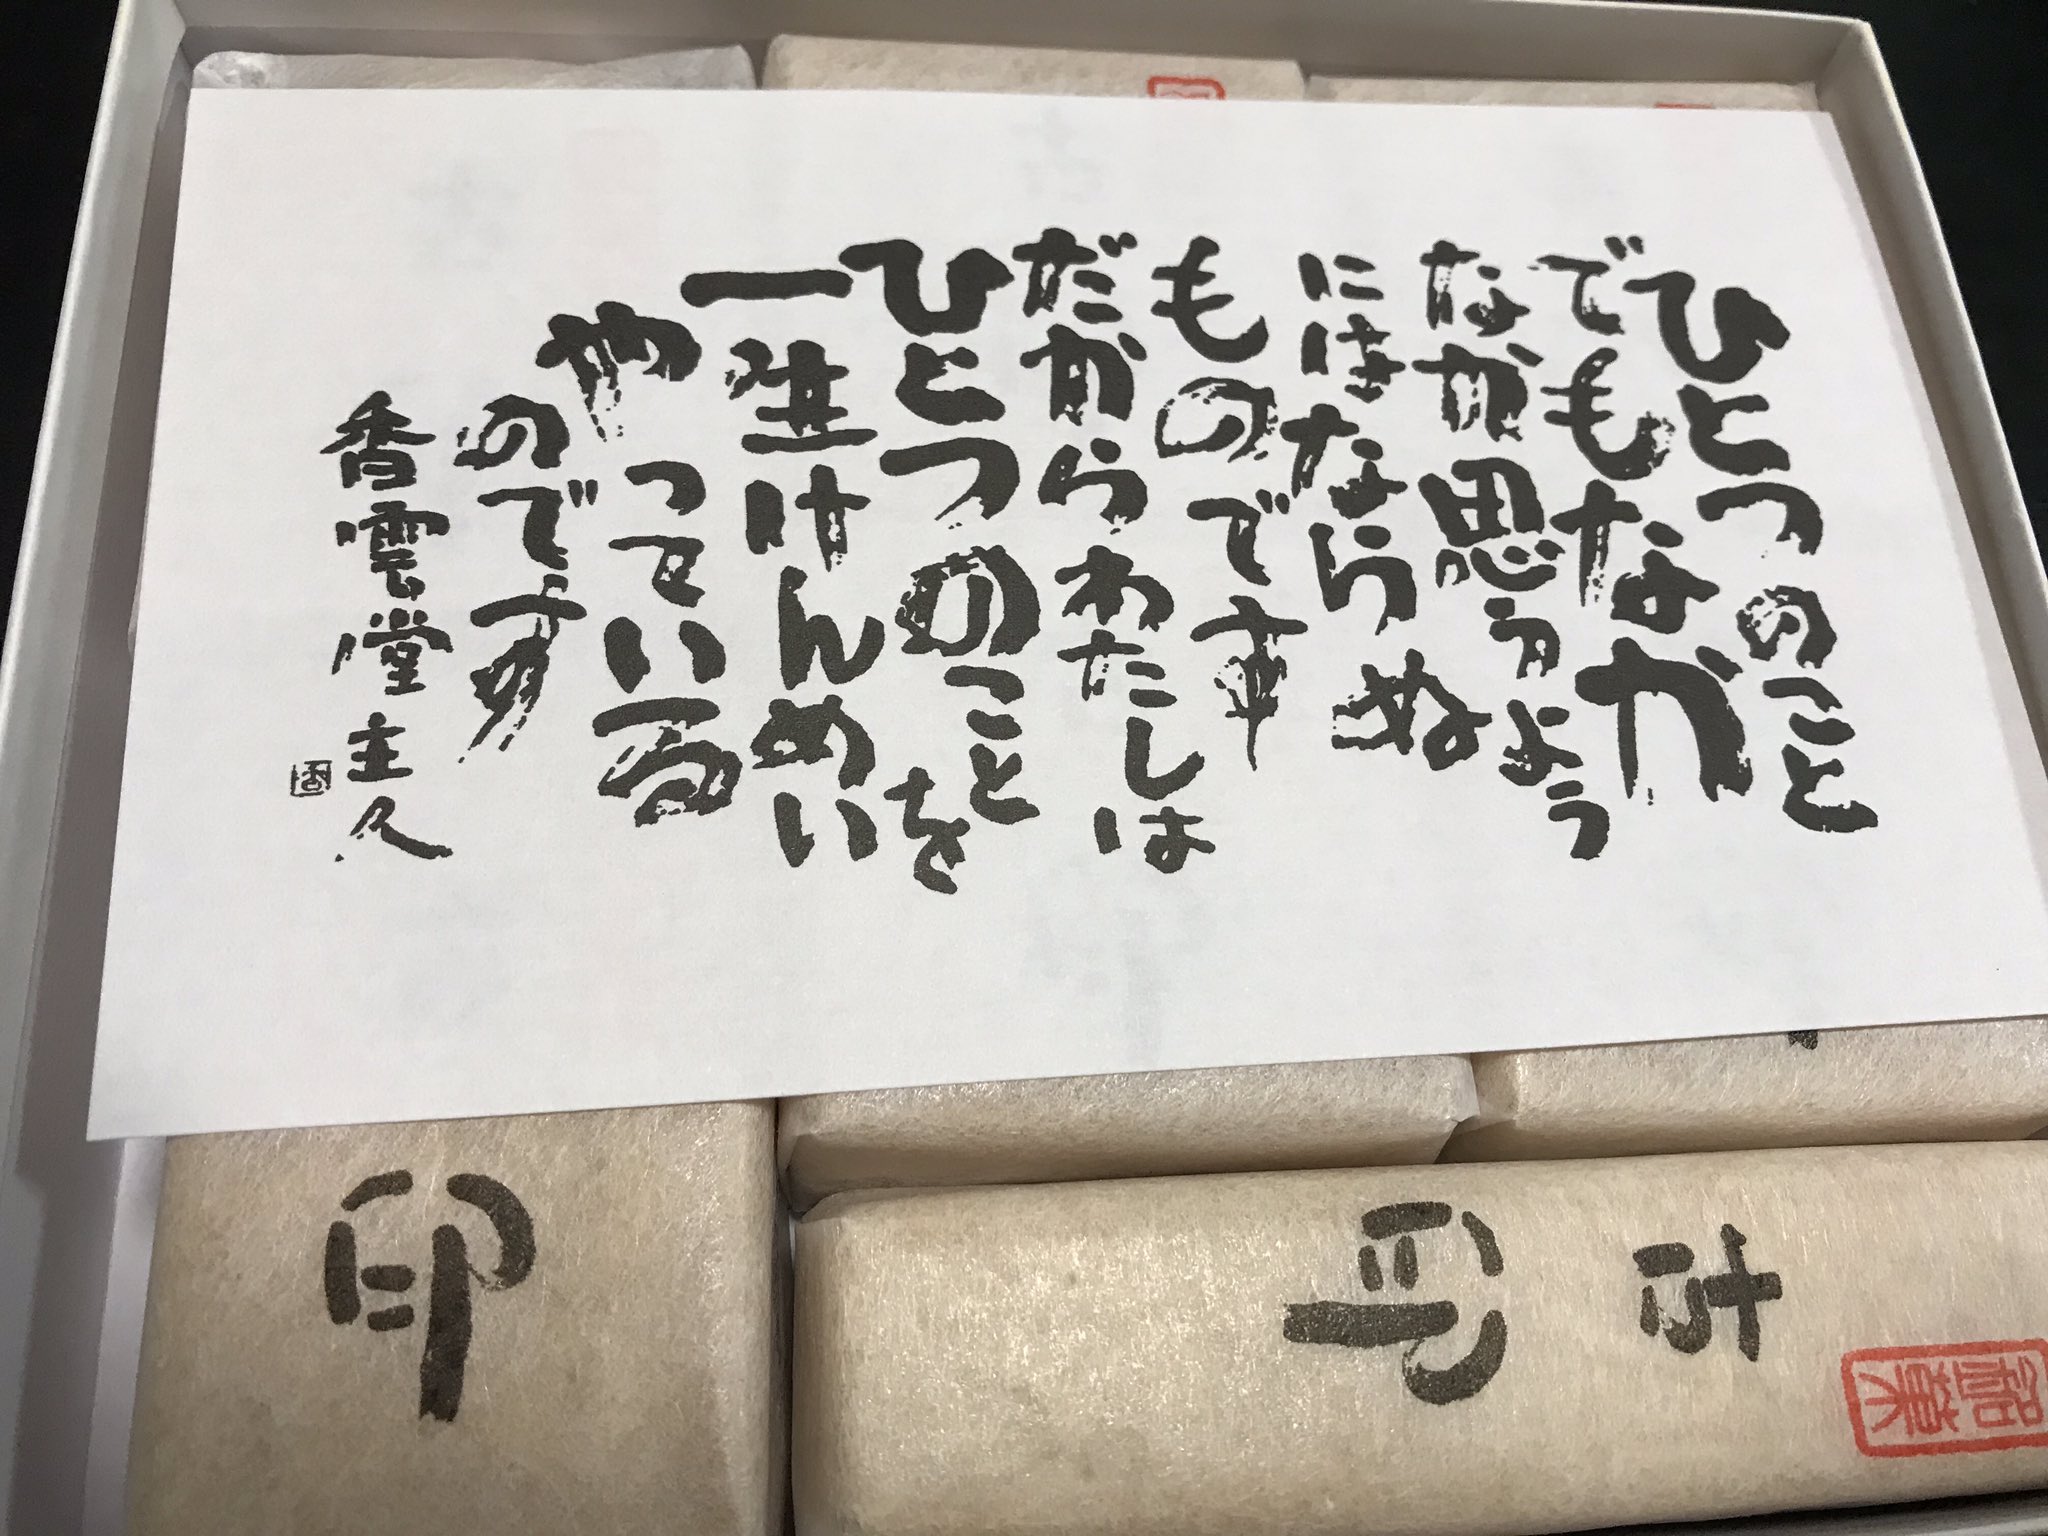 ひとつのこと
でもなかが
なか思うよう
にはならぬ
ものです
だからわたしは
ひとつのことを
一生けんめい
やっている
のです
香雲堂主人
印
銘菓